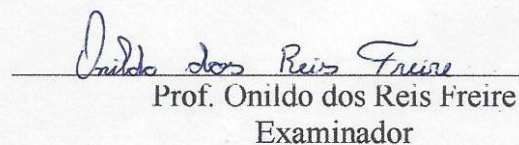 Onildo dos Reis Freire
Prof. Onildo dos Reis Freire
Examinador